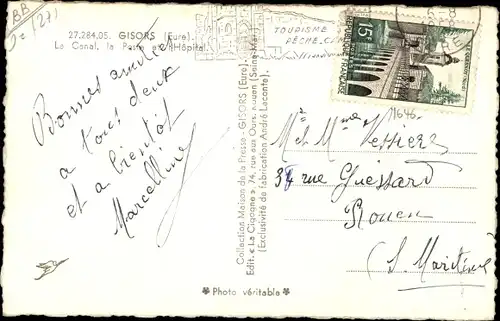 BB
27.284.05. GISORS (Eure).
Le Canal, la Poste et l'Hôpital.
Bonnes amitiés
a tous deux
et a bientôt
Marcelline
Collection Maison de la Presse - GISORS (Eure).
Edit. « La Cigogne », 74, rue aux Ours, Rouen (Seine-Mme)
(Exclusivité de fabrication André Leconte).
TOURISME
PÊCHE
15F
RÉPUBLIQUE FRANÇAISE
LE QUESNOY (NORD)
11646
M et Mme
rue
Rouen
(S. Maritime)
Photo véritable